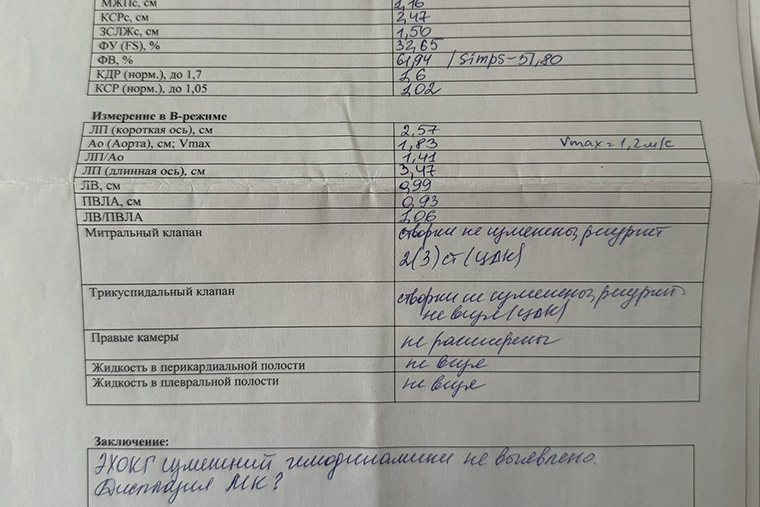 МЖПс, см 1,16
КСРс, см 2,47
ЗСЛЖс, см 1,50
ФУ (FS), % 32,65
ФВ, % 61,94 / Simps - 51,80
КДР (норм.), до 1,7 1,6
КСР (норм.), до 1,05 1,02
Измерение в В-режиме
ЛП (короткая ось), см 2,57
Ао (Аорта), см; Vmax 1,83 Vmax = 1,2 м/с
ЛП/Ао 1,41
ЛП (длинная ось), см 3,47
ЛВ, см 0,99
ПВЛА, см 0,93
ЛВ/ПВЛА 1,06
Митральный клапан створки не изменены, регургит
2(3) ст (ЦДК)
Трикуспидальный клапан створки не изменены, регургит-
не выяв (ЦДК)
Правые камеры не расширены
Жидкость в перикардиальной полости не выяв
Жидкость в плевральной полости не выяв
Заключение:
ЭХОКГ изменений гемодинамики не выявлено.
Дисплазия МК?